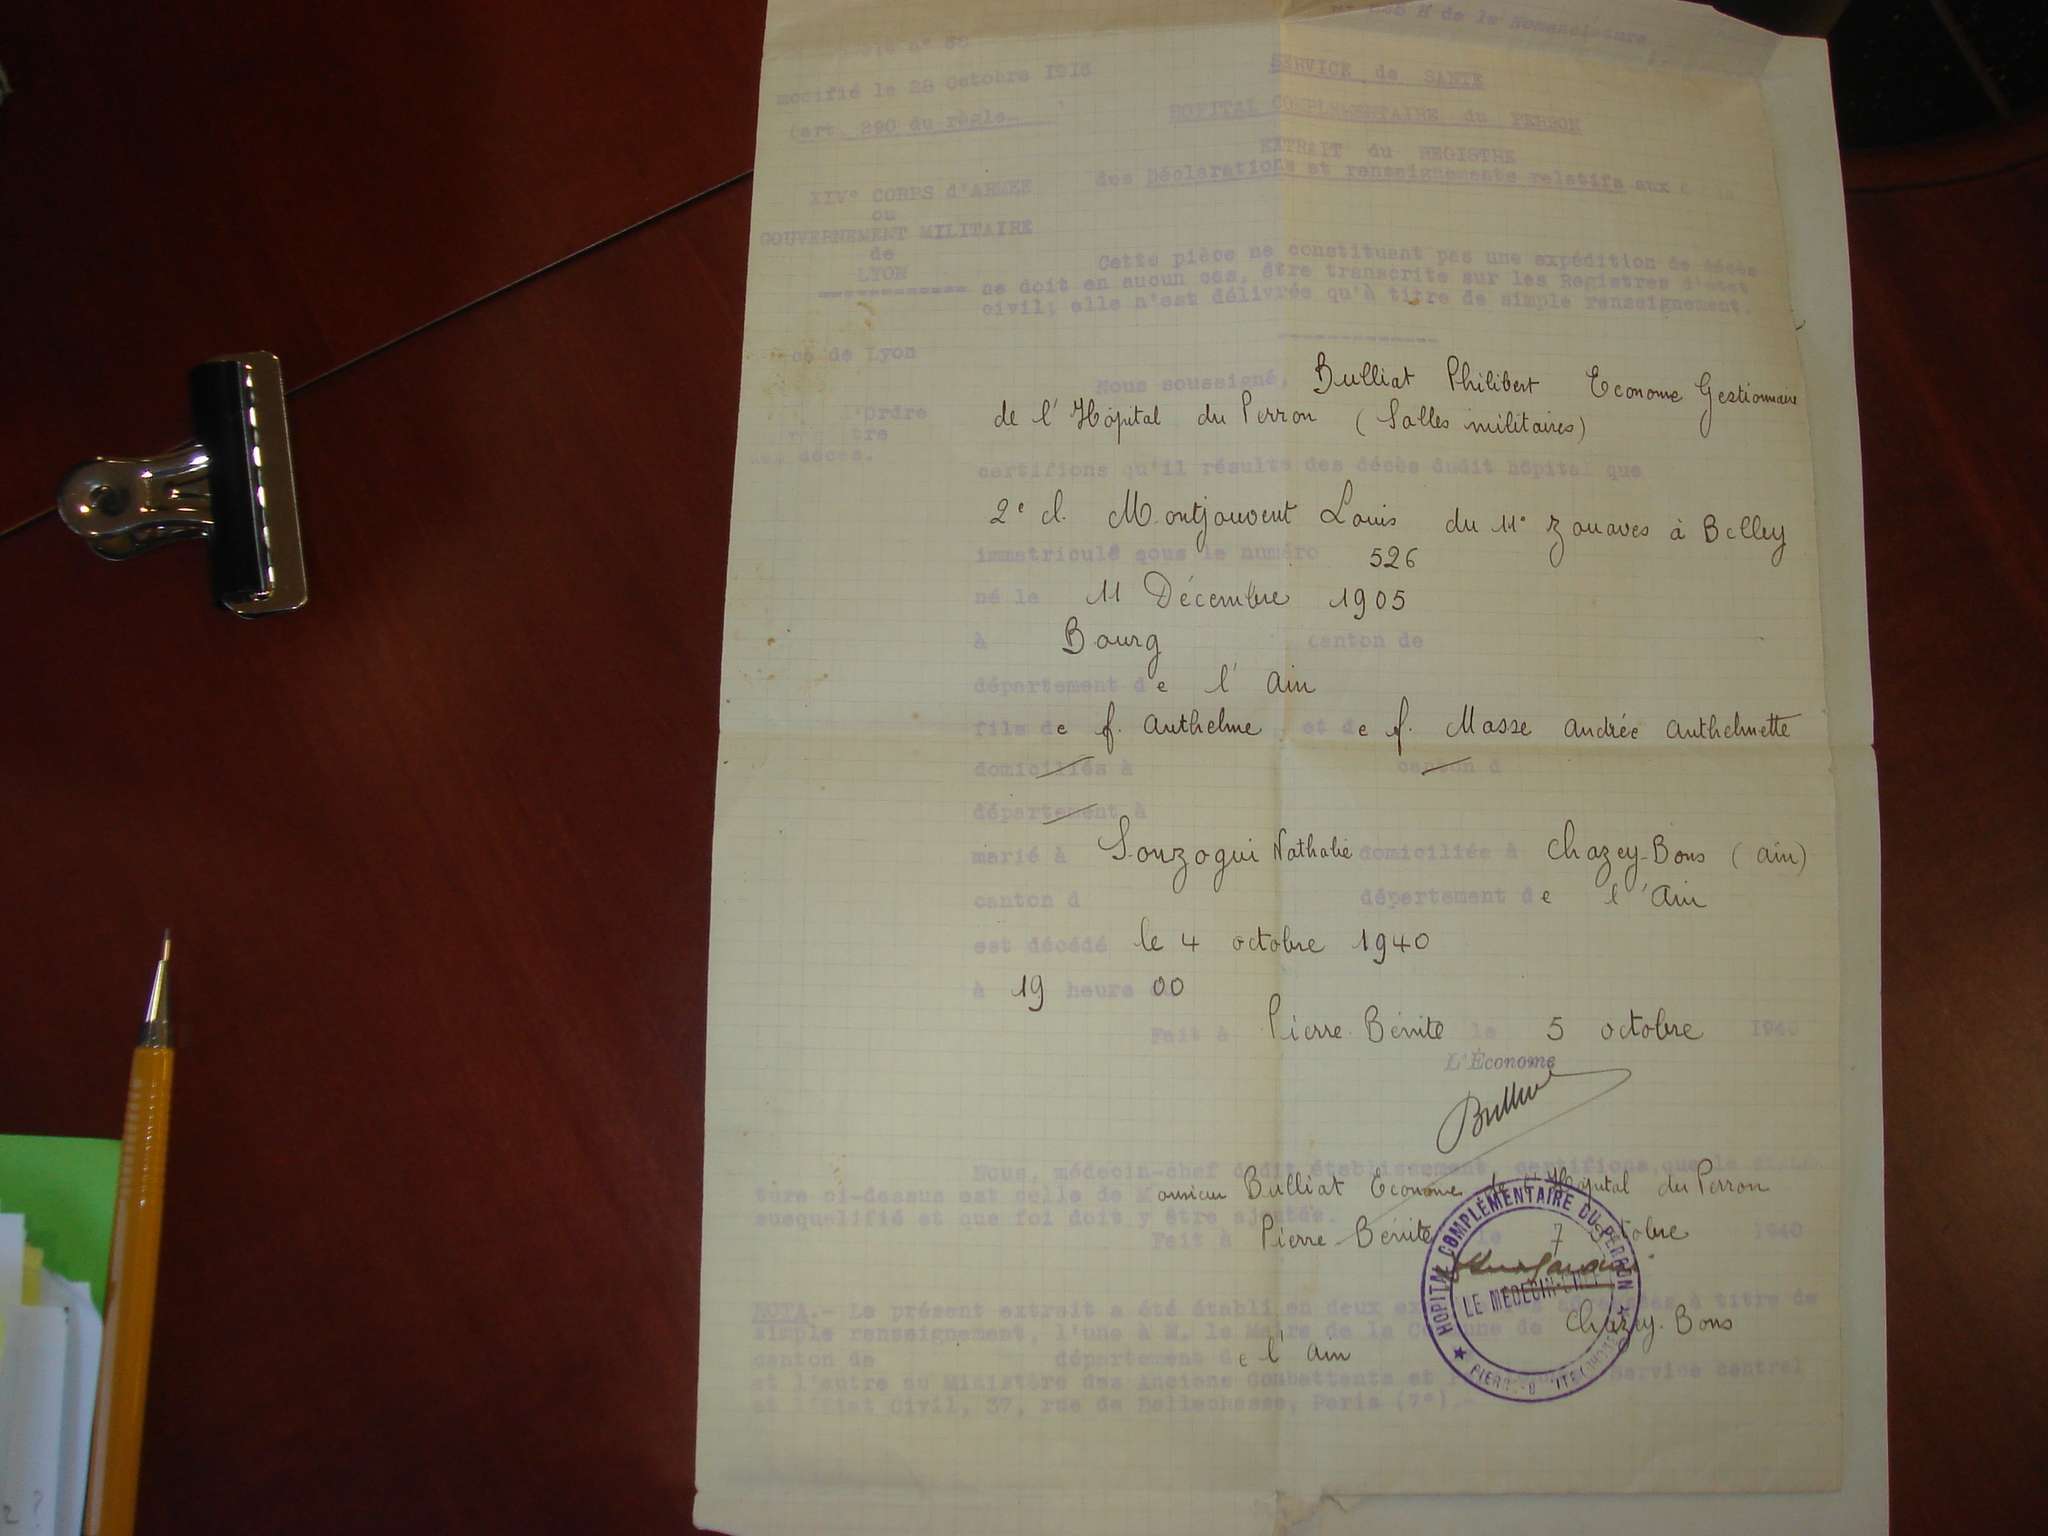 de la Nomenclature
modifié le 28 Octobre 1916
(art. 290 du règle
SERVICE de SANTE
HOPITAL COMPLEMENTAIRE du PERRON
EXTRAIT du REGISTRE
des Déclarations et renseignements relatifs aux
XIV° CORPS d'ARMEE
ou
GOUVERNEMENT MILITAIRE
de
LYON
Cette pièce ne constituant pas une expédition de décès
ne doit en aucun cas, être transcrite sur les Registres d'état
civil; elle n'est délivrée qu'à titre de simple renseignement.
de Lyon
l'Ordre
tre
décès.
Nous soussigné, Bulliat Philibert Econome Gestionnaire
de l'Hôpital du Perron (Salles militaires)
certifions qu'il résulte des décès dudit hôpital que
2e cl. Montjouvent Louis du 11e zouaves à Belley
immatriculé sous le numéro 526
né le 11 Décembre 1905
à Bourg canton de
département de l'Ain
fils de f. Anthelme et de f. Masse Andrée Anthelmette
domiciliés à canton d
département à
marié à Sonzogui Nathalie domiciliée à Chazey-Bons (Ain)
canton d département de l'Ain
est décédé le 4 octobre 1940
à 19 heure 00
Fait à Pierre-Bénite le 5 octobre 1940
L'Économe
Bulliat
Nous, médecin-chef dudit établissement, certifions que la
ture ci-dessus est celle de Monsieur Bulliat Econome de l'Hôpital du Perron
susqualifié et que foi doit y être ajoutée.
Fait à Pierre-Bénite le 7 octobre 1940
HOPITAL COMPLÉMENTAIRE DU PERRON
LE MÉDECIN-CHEF
NOTA.- Le présent extrait a été établi en deux à titre de
simple renseignement, l'une à M. le Maire de la Commune de Chazey-Bons
canton de département de l'Ain
et l'autre au Ministère des Anciens Combattants et Service central
et l'Etat Civil, 37, rue de Bellechasse, Paris (7°).-